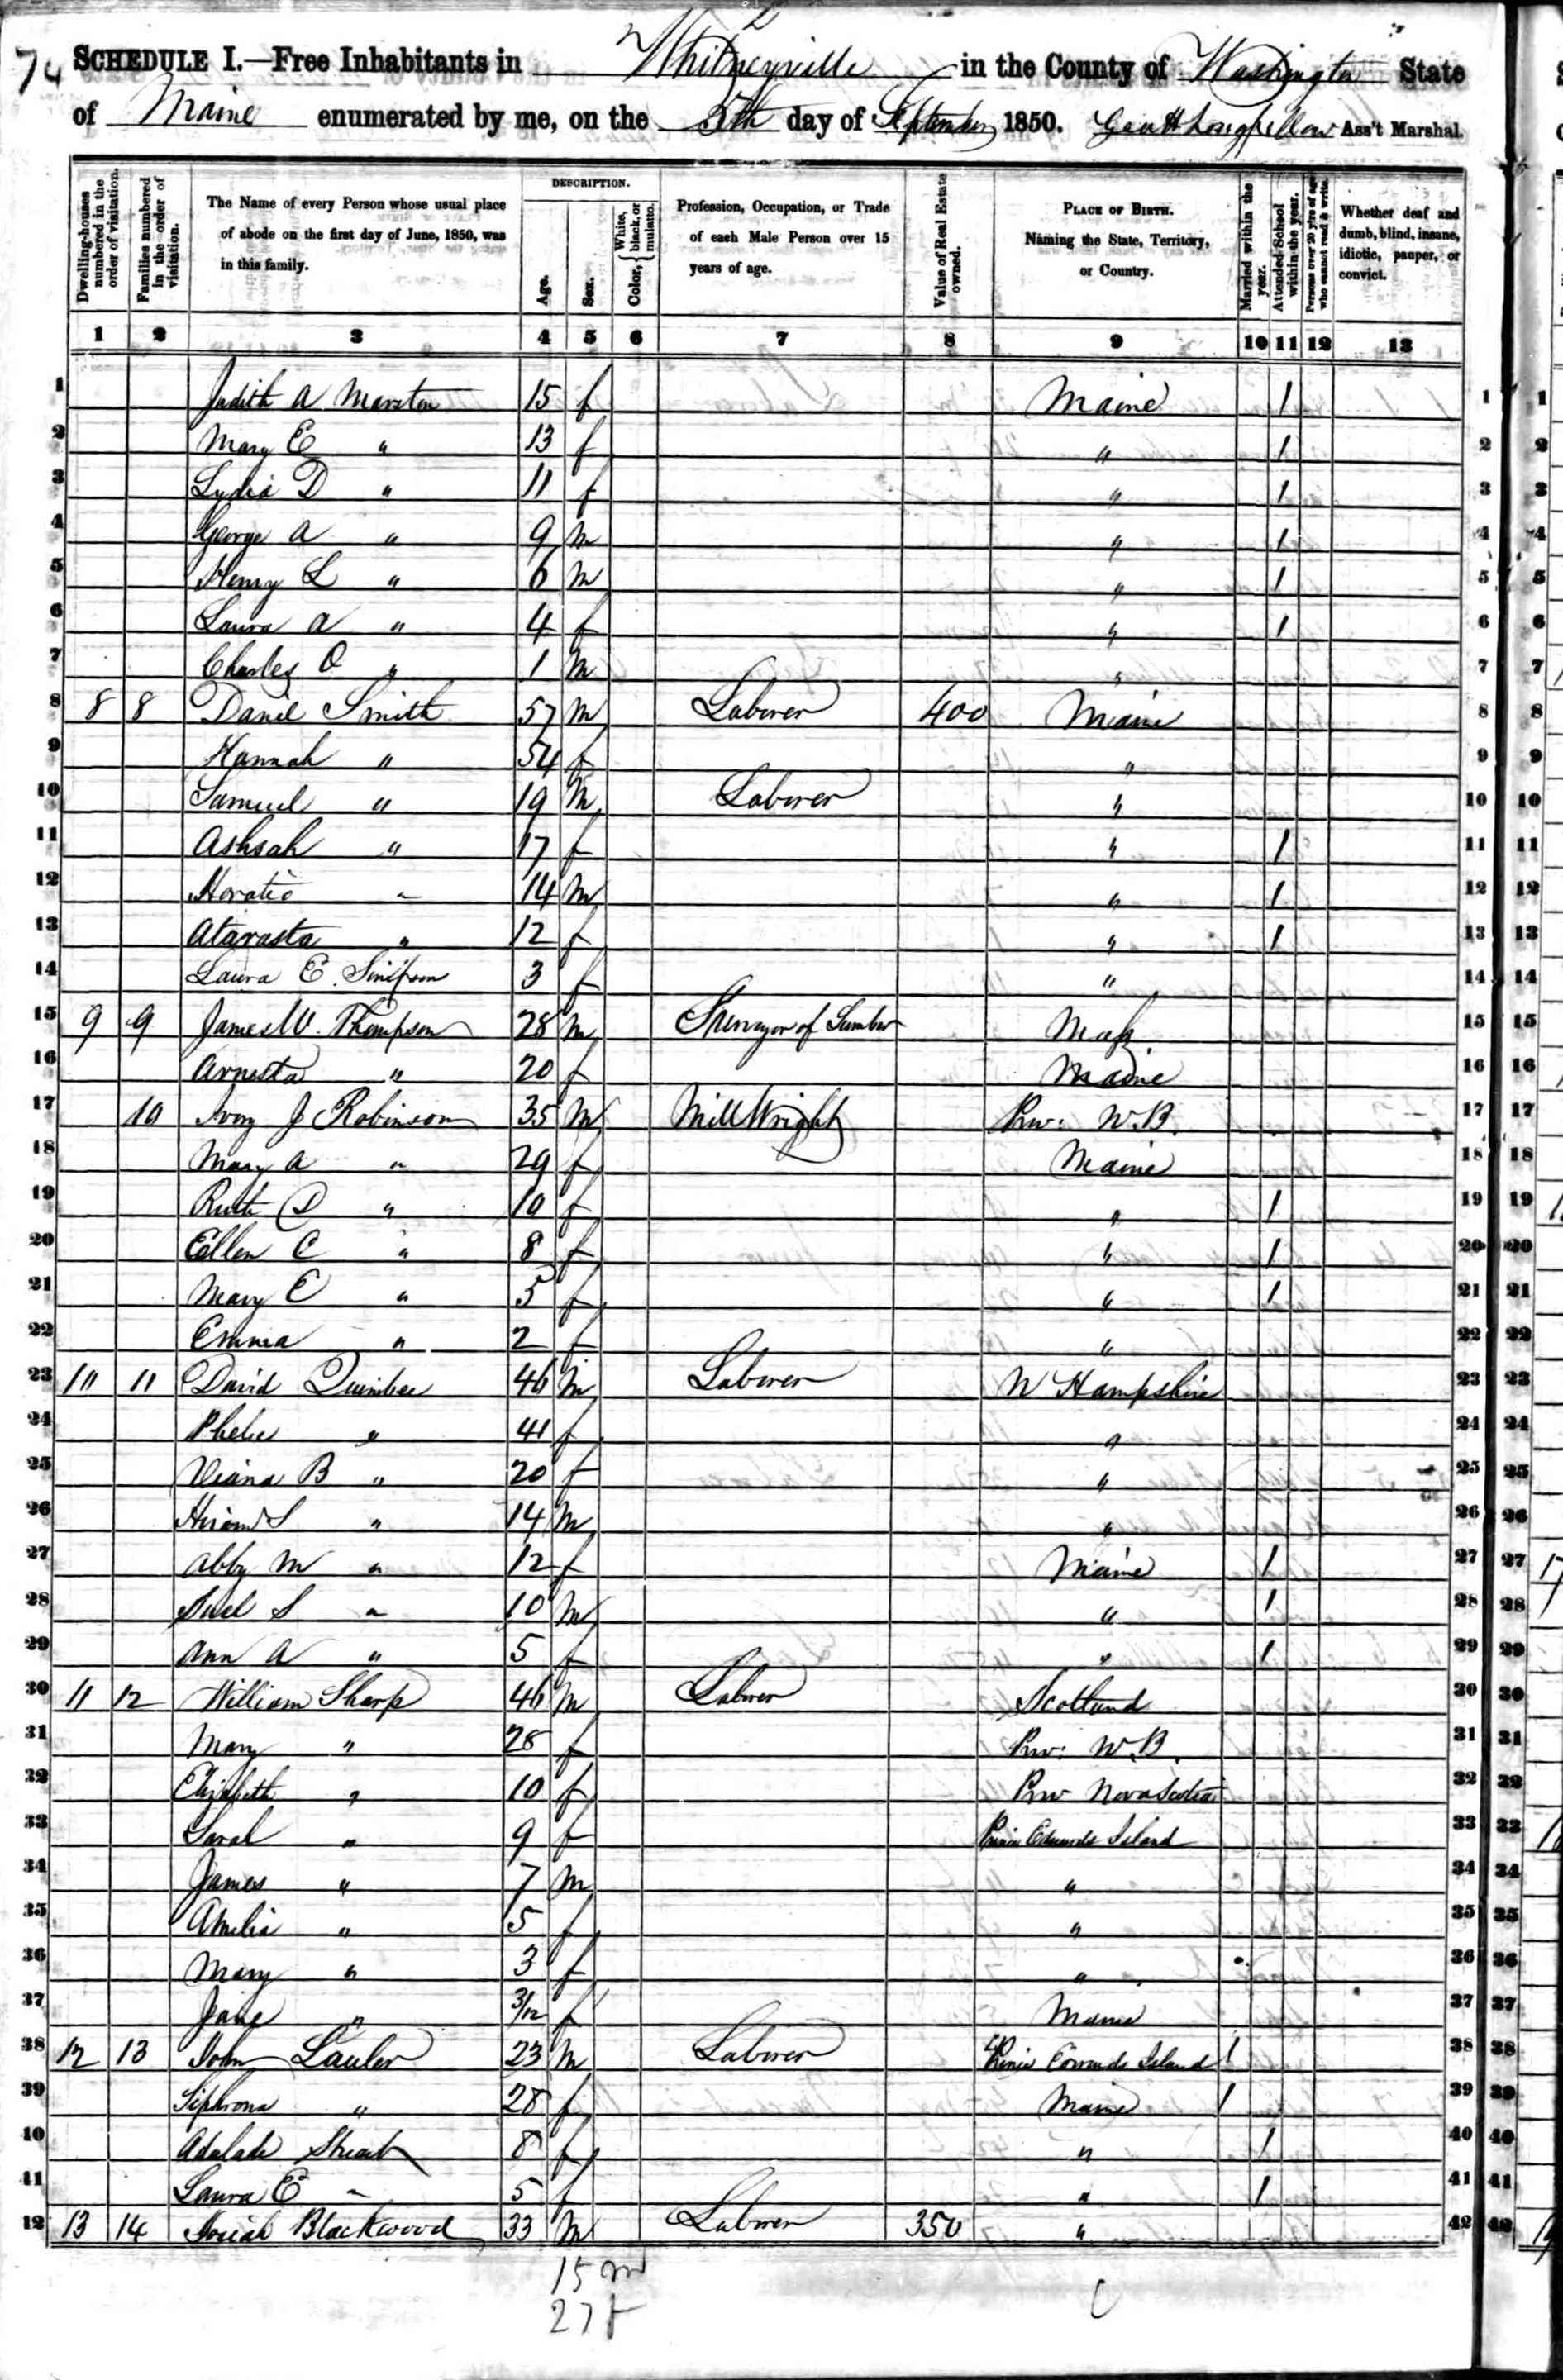 74 SCHEDULE I.—Free Inhabitants in Whitneyville in the County of Washington State
of Maine enumerated by me, on the 5th day of September 1850. Geo H Longfellow Ass't Marshal.
Dwelling-houses numbered in the order of visitation.
Families numbered in the order of visitation.
The Name of every Person whose usual place of abode on the first day of June, 1850, was in this family.
DESCRIPTION.
Age.
Sex.
Color, { White, black, or mulatto.
Profession, Occupation, or Trade of each Male Person over 15 years of age.
Value of Real Estate owned.
PLACE OF BIRTH. Naming the State, Territory, or Country.
Married within the year.
Attended School within the year.
Persons over 20 y'rs of age who cannot read & write.
Whether deaf and dumb, blind, insane, idiotic, pauper, or convict.
1 2 3 4 5 6 7 8 9 10 11 12 13
1 Judith A Marston 15 f Maine 1 1
2 Mary E " 13 f " 1 2
3 Lydia D " 11 f " 1 3
4 George A " 9 m " 1 4
5 Henry L " 6 m " 1 5
6 Laura A " 4 f " 1 6
7 Charles O " 1 m " 7
8 8 8 Daniel Smith 57 m Laborer 400 Maine 8
9 Hannah " 54 f " 9
10 Samuel " 19 m Laborer " 10
11 Ashsah " 17 f " 1 11
12 Horatio " 14 m " 1 12
13 Atavasta " 12 f " 1 13
14 Laura E. Simpson 3 f " 14
15 9 9 James W. Thompson 28 m Surveyor of Lumber Mass 15
16 Arnesta " 20 f Maine 16
17 10 Ivory J Robinson 35 m Mill Wright Prov: N.B. 17
18 Mary A " 29 f Maine 18
19 Ruth D " 10 f " 1 19
20 Ellen C " 8 f " 1 20
21 Mary E " 5 f " 1 21
22 Emma " 2 f " 22
23 10 11 David Quimbee 46 m Laborer N Hampshire 23
24 Phebe " 41 f " 24
25 Diana B " 20 f " 25
26 Hiram S " 14 m " 26
27 Abby M " 12 f Maine 1 27
28 S " 10 m " 1 28
29 Ann A " 5 f " 1 29
30 11 12 William Sharp 46 m Laborer Scotland 30
31 Mary " 28 f Prov: N.B. 31
32 Elizabeth " 10 f Prov Nova Scotia 32
33 Sarah " 9 f Prince Edwards Island 33
34 James " 7 m " 34
35 Amelia " 5 f " 35
36 Mary " 3 f " 36
37 Jane " 3/12 f Maine 37
38 12 13 John Lauler 23 m Laborer Prince Edwards Island 1 38
39 Siphrona " 28 f Maine 1 39
40 Adalade 8 f " 1 40
41 Laura E " 5 f " 1 41
42 13 14 Josiah Blackwood 33 m Laborer 350 " 42
15 m
27 f